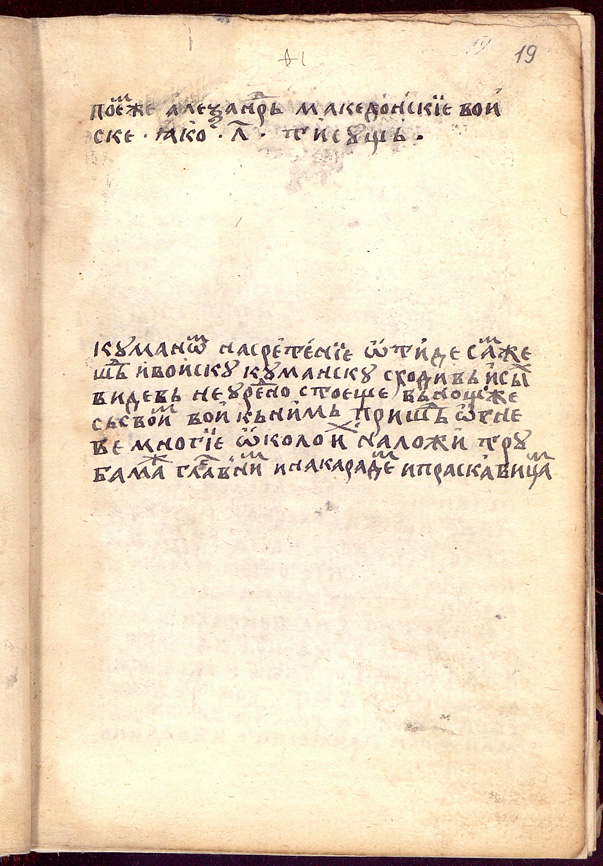 19
поем же алеѯанⷣрь македонскїе вои
ске · ꙗко · л҃ · тисꙋщь ·
кꙋманѡⷨ насретенїе ѿтиде саⷨ же
шьⷣ и воискꙋ кꙋманскꙋ сходивь и сыⷯ
видевь неꙋреⷣно стоеще вь нощ же
сь своиⷨ вои кь нимь пришьⷣ ѿгне
ве многїе ѡколо иⷯ наложи трꙋ
бамаⷤ главниⷨ и накарадеⷨ и праскавицаⷨ